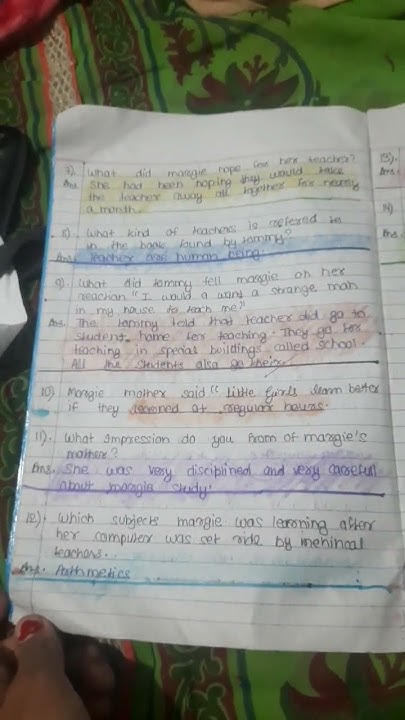 7). What did margie hope for her teacher?
Ans. She had been hoping they would take
the teacher away all together for nearly
a month.
8). What kind of teachers is refered to
in the book found by tommy?
Ans. teacher are human being.
9). What did tommy tell margie on her
reaction "I would a want a strange man
in my house to teach me"
Ans. The tommy told that teacher did go to
student home for teaching. They go for
teaching in special buildings called school.
All the students also go their.
10) Margie mother said "little girls learn better
if they learned at regular hours.
11). What Impression do you from of margie's
mother?
Ans. She was very disciplined and very carefull
about margie study.
12). Which subjects margie was learning after
her computer was set ride by mehincal
teachars.
Ans. Arthmetics
13).
Ans.
14)
Ans.